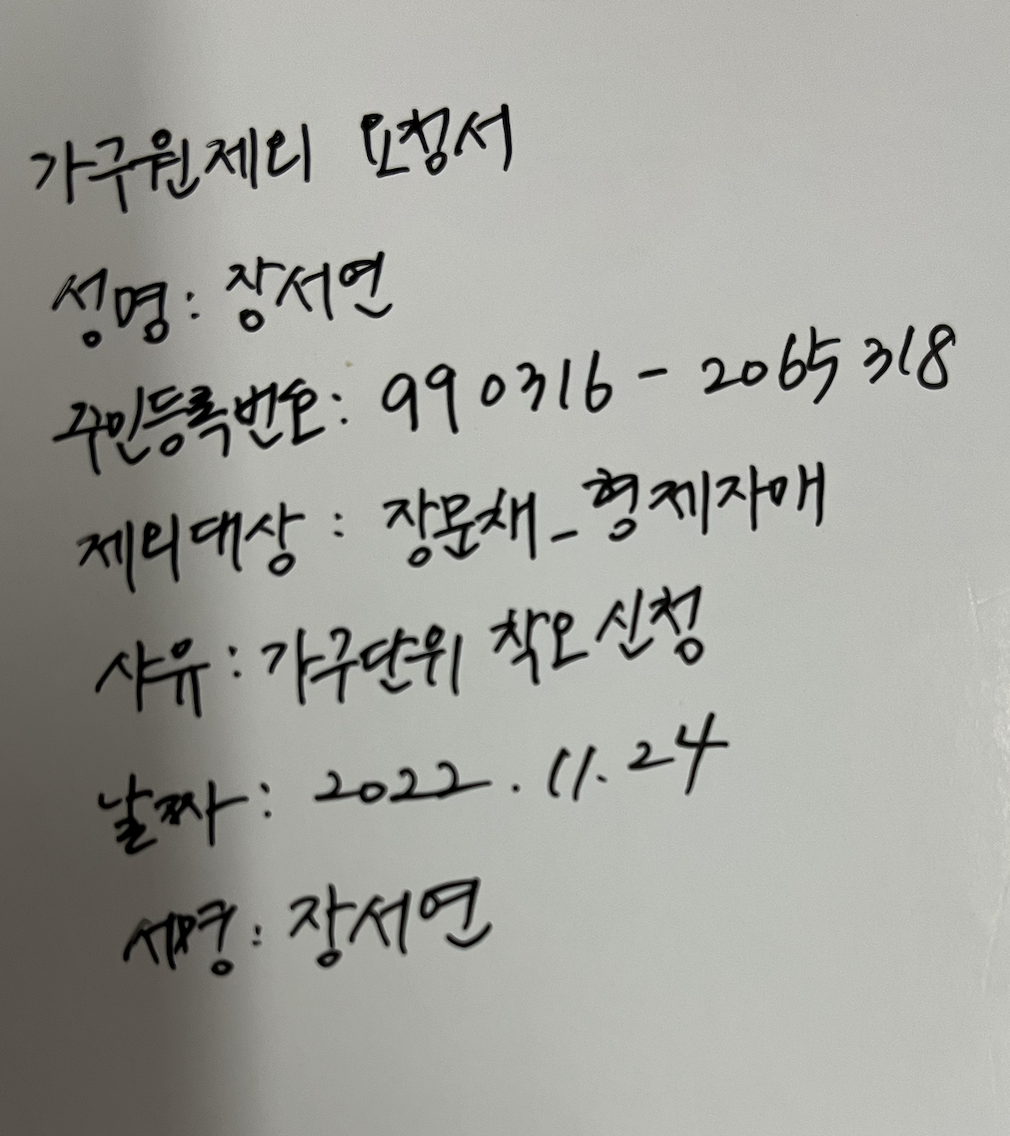 가구원제외 요청서
성명: 장서연
주민등록번호: 990316-2065318
제외대상: 장문채_형제자매
사유: 가구단위 착오신청
날짜: 2022.11.24
서명: 장서연